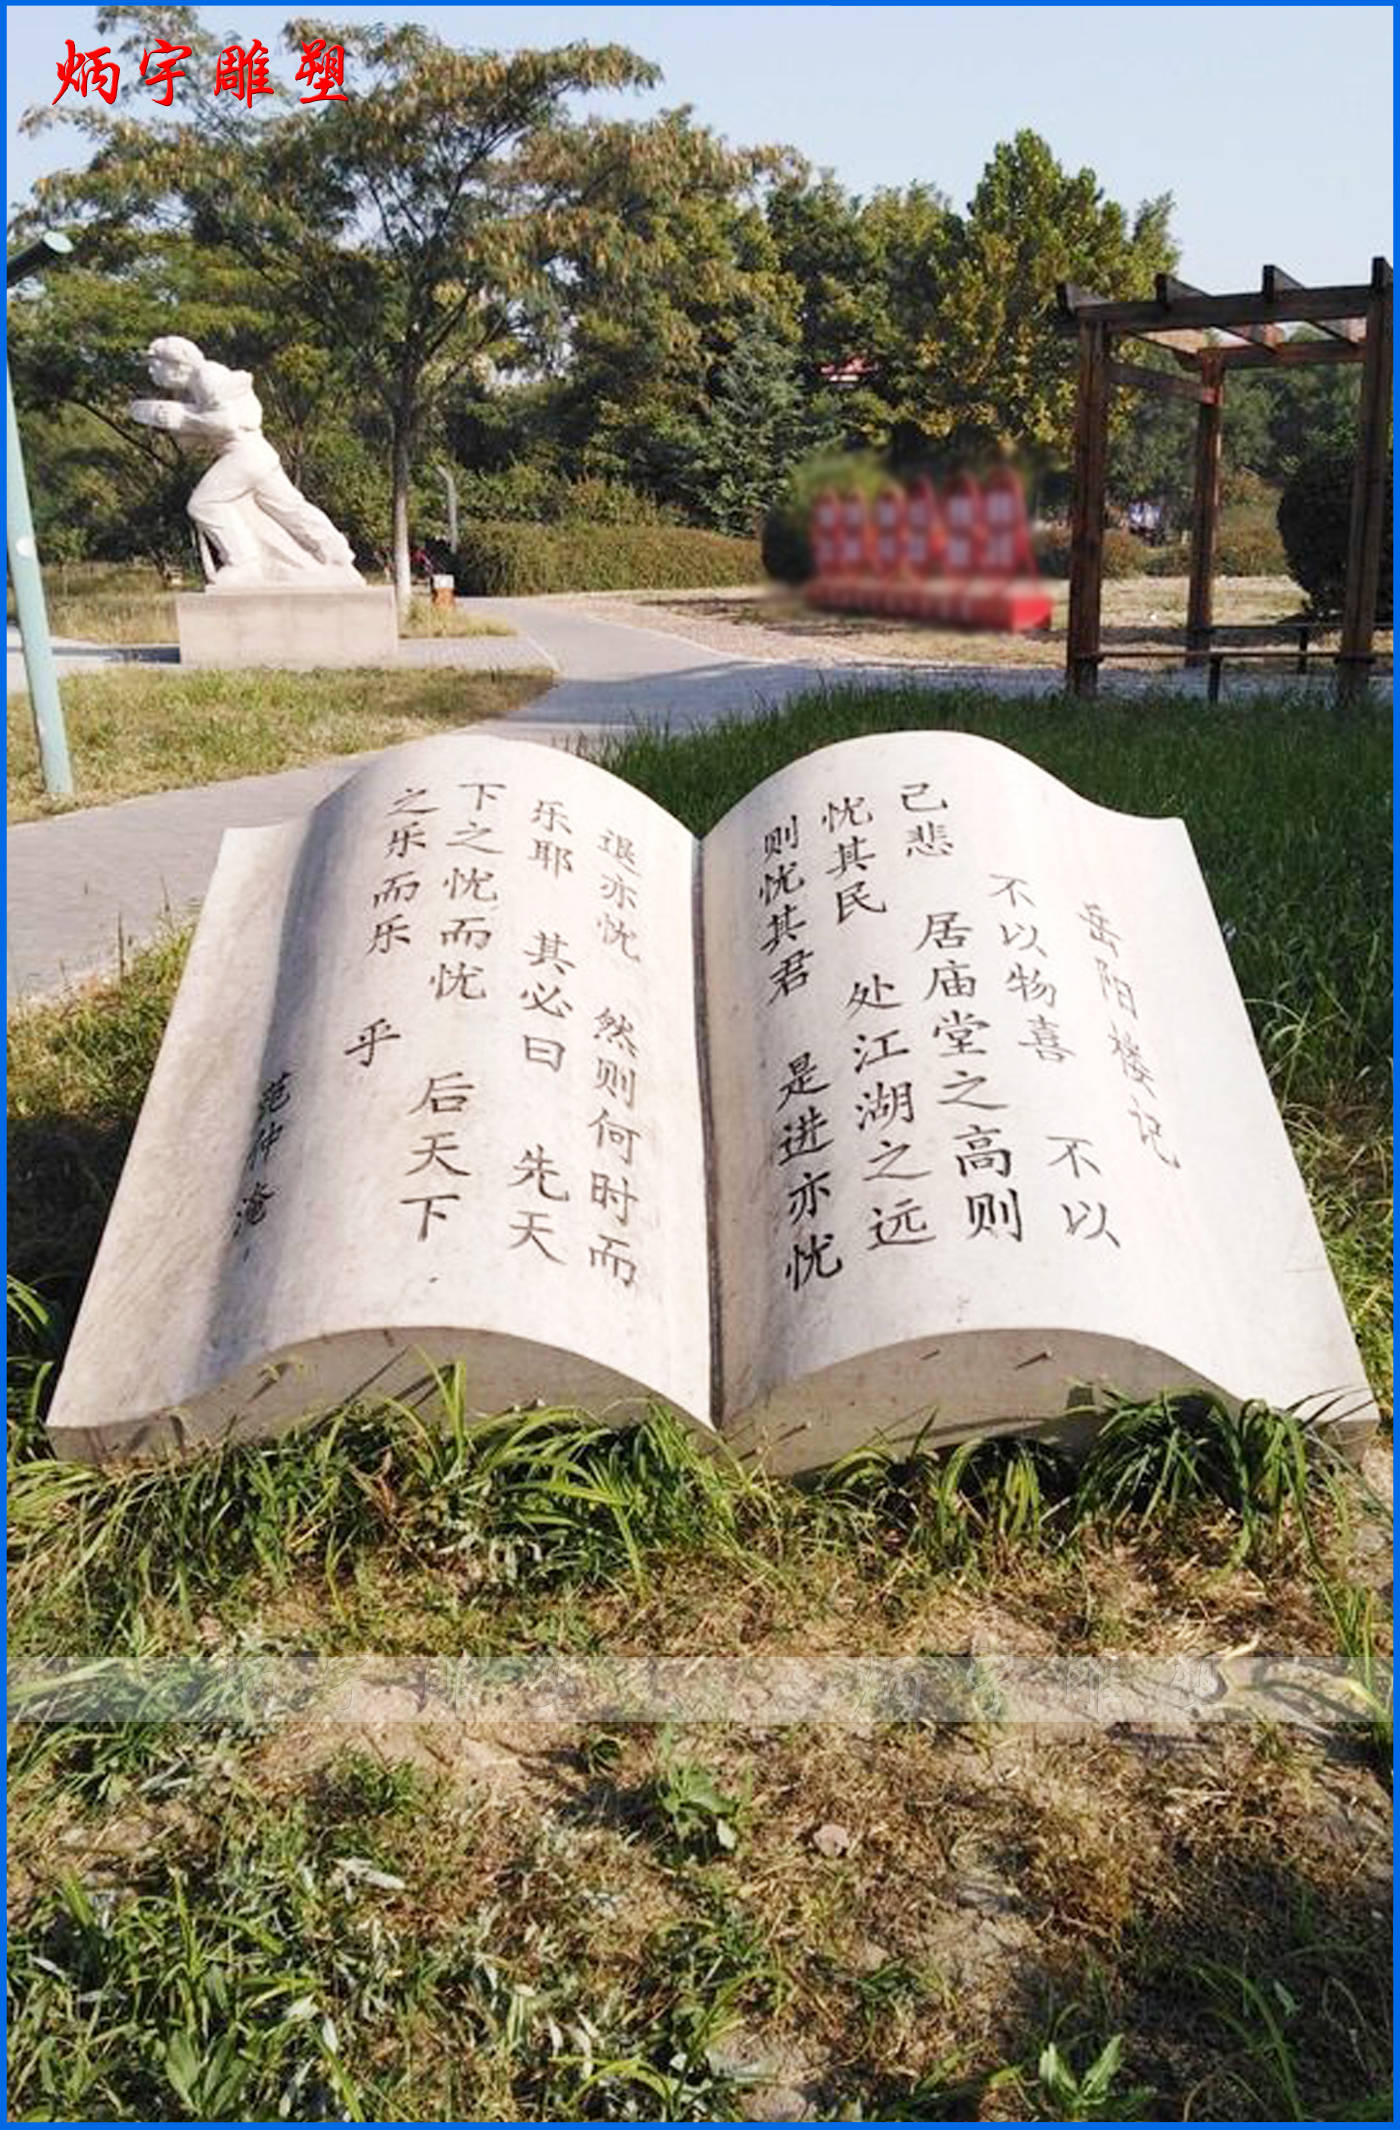 炳宇雕塑
岳阳楼记
不以物喜 不以
己悲 居庙堂之高则
忧其民 处江湖之远
则忧其君 是进亦忧
退亦忧 然则何时而
乐耶 其必曰 先天
下之忧而忧 后天下
之乐而乐 乎
范仲淹
炳宇雕塑 炳宇雕塑